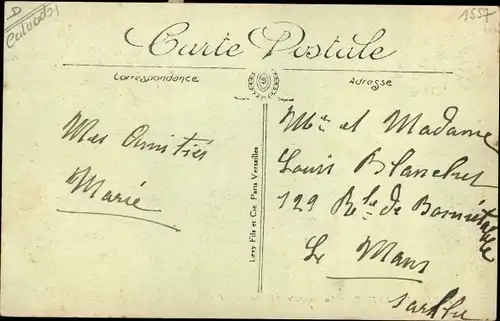 D
Calvados
1557
Carte Postale
Correspondance
Adresse
Mes Amitiés
Marie
Levy Fils et Cie, Paris Versailles
Mr et Madame
Louis Blanchet
129 Rte de
Le Mans
Sarthe